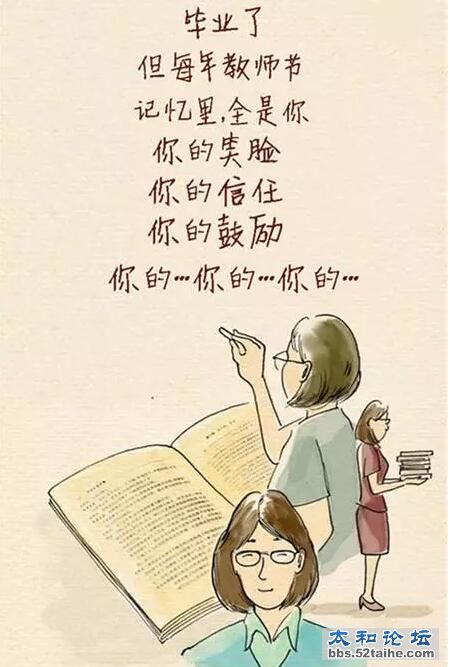 毕业了
但每年教师节
记忆里,全是你
你的笑脸
你的信任
你的鼓励
你的…你的…你的…
太和论坛
bbs.52taihe.com